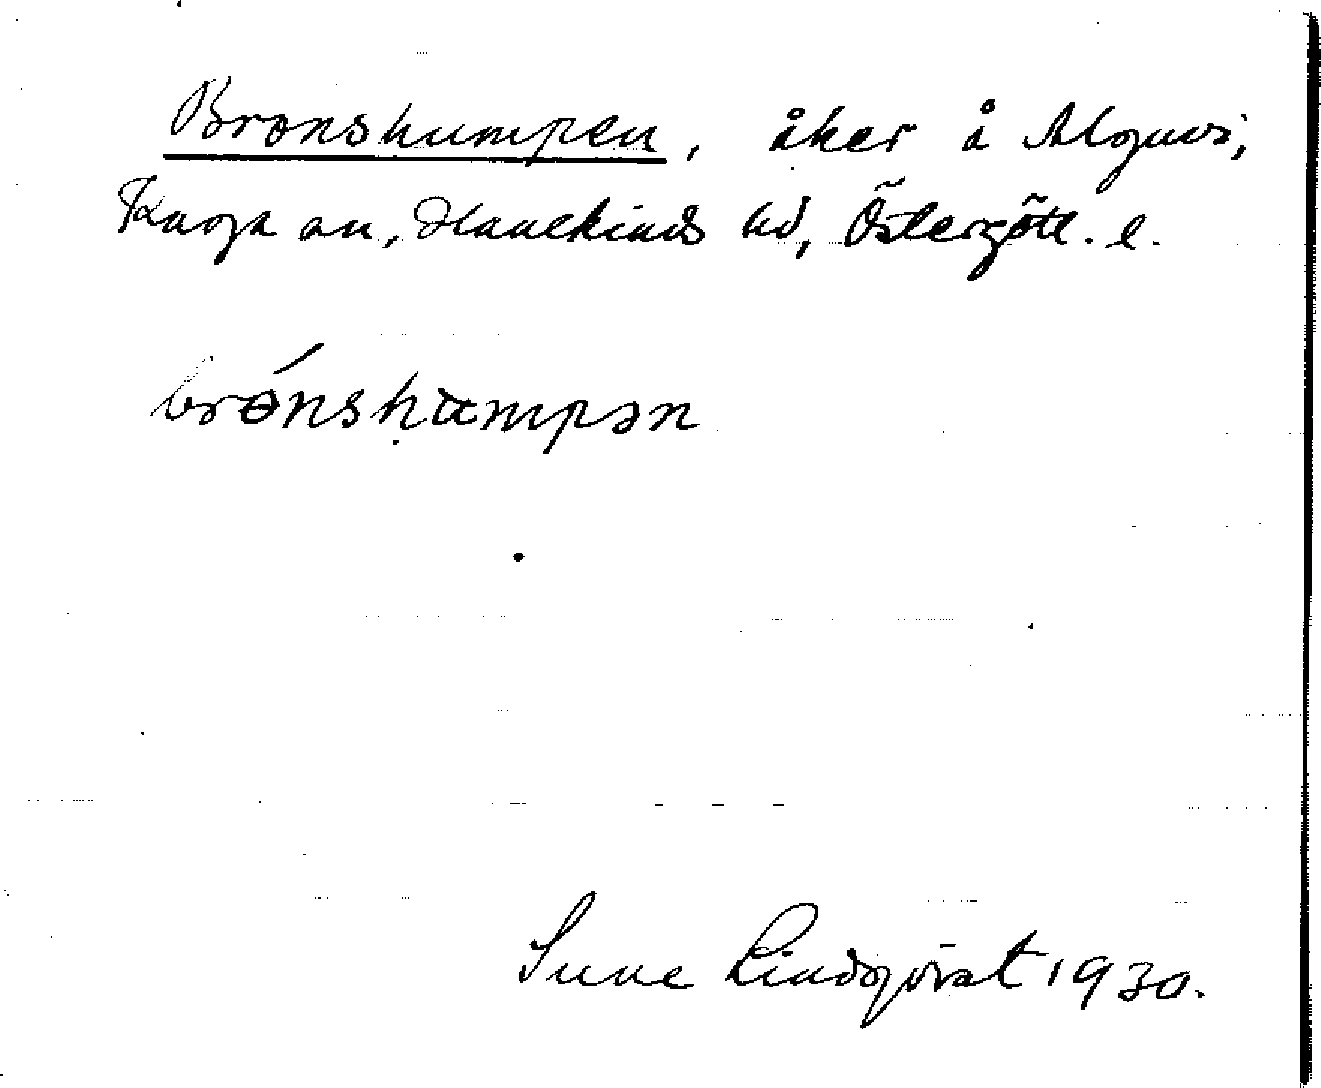 Bronshumpen, åker å Algusvi,
Kaga sn, Hanekinds hd, Östergötl. l.
brónshumpən
Sune Lindqvist 1930.